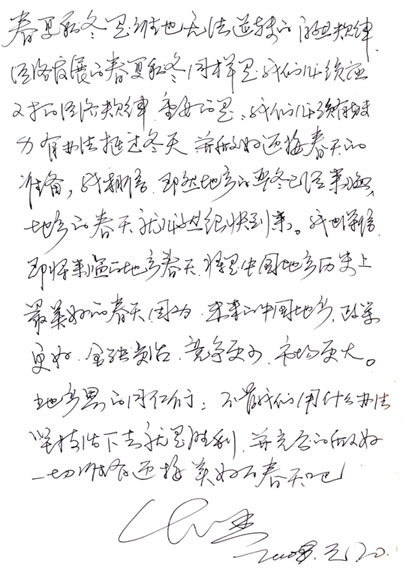 春夏秋冬是谁也无法逆转的自然规律
经济发展的春夏秋冬同样是我们必须应
对的经济规律,重要的是,我们必须有能
力有办法挺过冬天 并做好迎接春天的
准备,我相信,既然地产的寒冬已经来临,
地产的春天就必然会很快到来。我也深信
即将来临的地产春天,将是中国地产历史上
最美好的春天,因为,未来的中国地产,政策
更好,金融灵活,竞争更少,市场更大。
地产界的同仁们:不管我们用什么办法
坚持活下去就是胜利,并充分的做好
一切准备迎接美好的春天吧
2008.元.20.